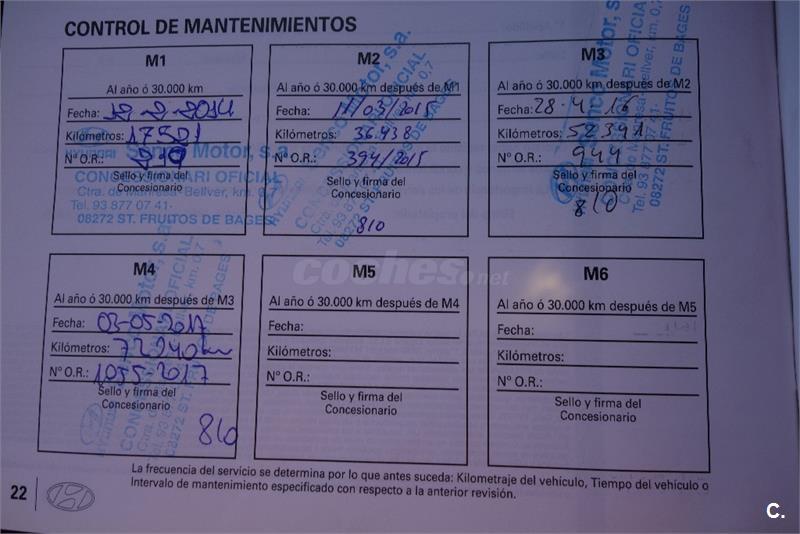 CONTROL DE MANTENIMIENTOS
M1
Al año ó 30.000 km
Fecha: 12-2-2014
Kilómetros: 17521
Nº O.R.: 210
Sello y firma del
Concesionario
HYUNDAI Motor, s.a.
CONCESSIONARI OFICIAL
Ctra. de Manresa-Bellver, km. 0,7
Tel. 93 877 07 41-
08272 ST. FRUITOS DE BAGES
M2
Al año ó 30.000 km después de M1
Fecha: 11/03/2015
Kilómetros: 36.438
Nº O.R.: 394/2015
Sello y firma del
Concesionario
810
Motor, s.a.
08272 ST. FRUITOS DE BAGES
M3
Al año ó 30.000 km después de M2
Fecha: 28-4-16
Kilómetros: 52391
Nº O.R.: 944
Sello y firma del
Concesionario
810
Motor, s.a.
Tel. 93 877 07 41-
08272 ST. FRUITOS DE BAGES
M4
Al año ó 30.000 km después de M3
Fecha: 03-05-2017
Kilómetros: 72240km
Nº O.R.: 1055-2017
Sello y firma del
Concesionario
810
M5
Al año ó 30.000 km después de M4
Fecha:
Kilómetros:
Nº O.R.:
Sello y firma del
Concesionario
M6
Al año ó 30.000 km después de M5
Fecha:
Kilómetros:
Nº O.R.:
Sello y firma del
Concesionario
coches.net
La frecuencia del servicio se determina por lo que antes suceda: Kilometraje del vehículo, Tiempo del vehículo o
Intervalo de mantenimiento especificado con respecto a la anterior revisión.
22
C.